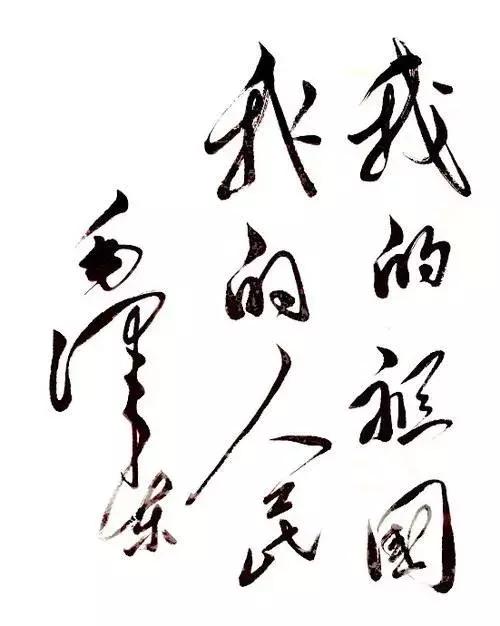 我的祖國
我的人民
毛澤东